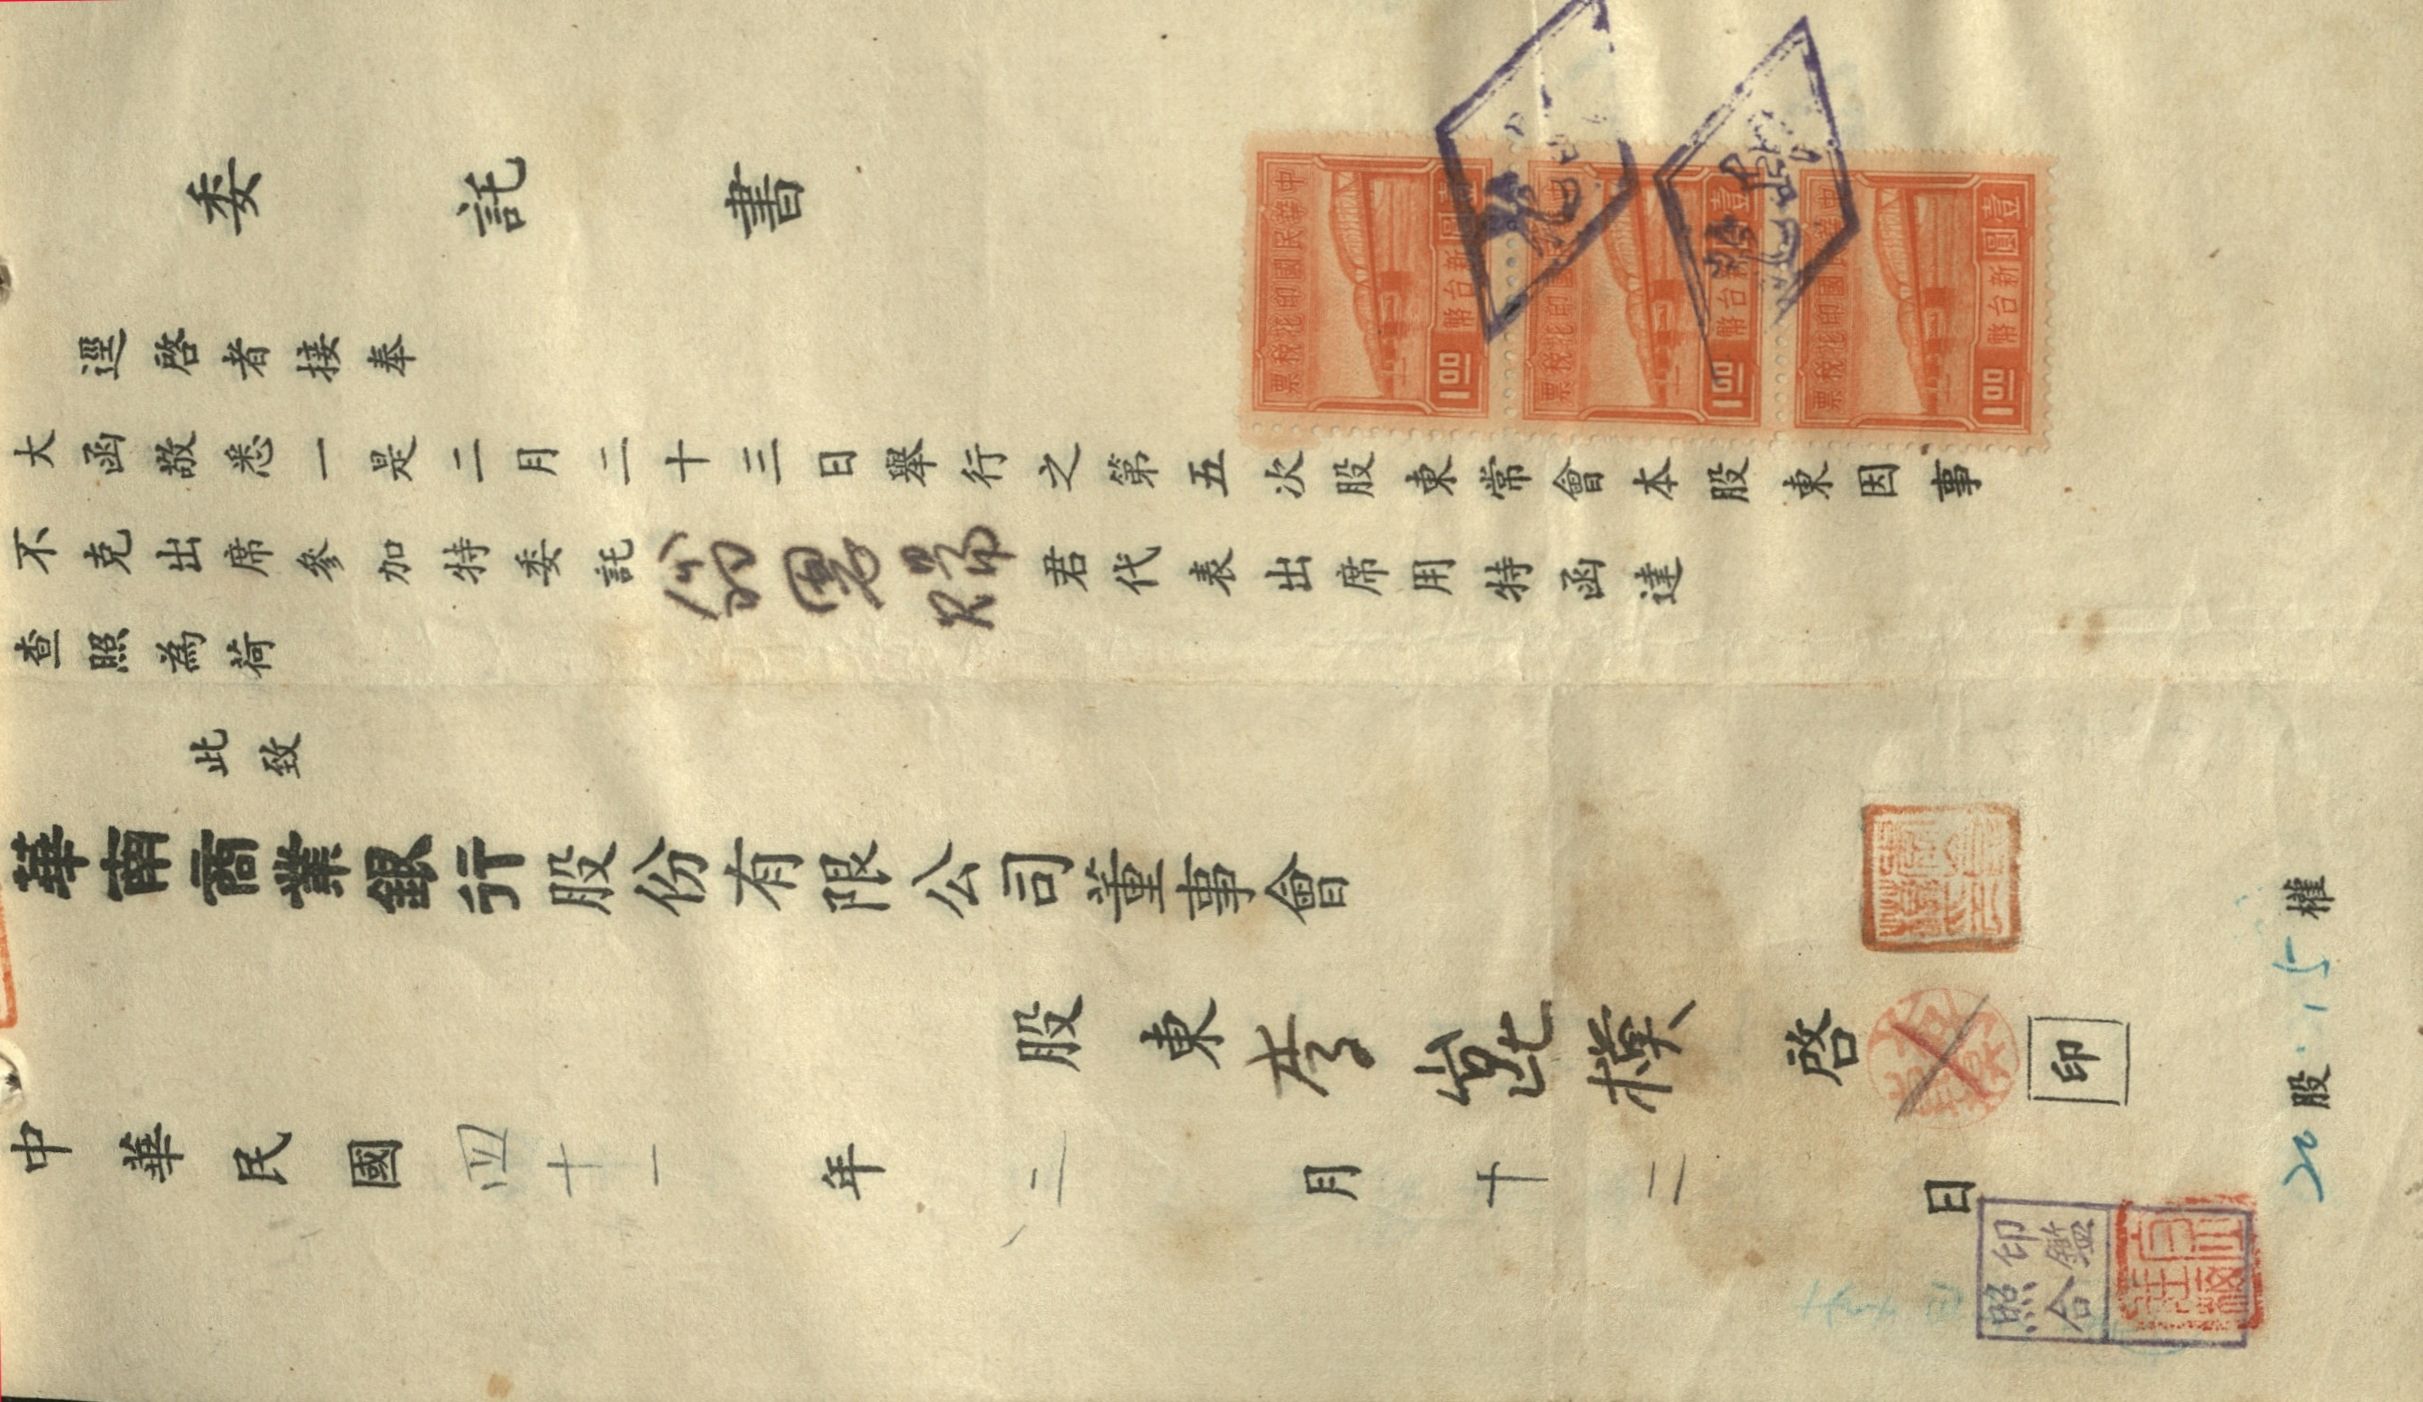 委託書
逕啓者接奉
大函敬悉一是二月二十三日舉行之第五次股東常會本股東因事
不克出席參加特委託翁 君代表出席用特函達
查照為荷
此致
華南商業銀行股份有限公司董事會
股東李 樸 啓
印
中華民國四十一年二月十二日
20股:15權
印鑑
照合
中華民國印花稅票
壹圓新台幣
1.00
中華民國印花稅票
壹圓新台幣
1.00
中華民國印花稅票
壹圓新台幣
1.00